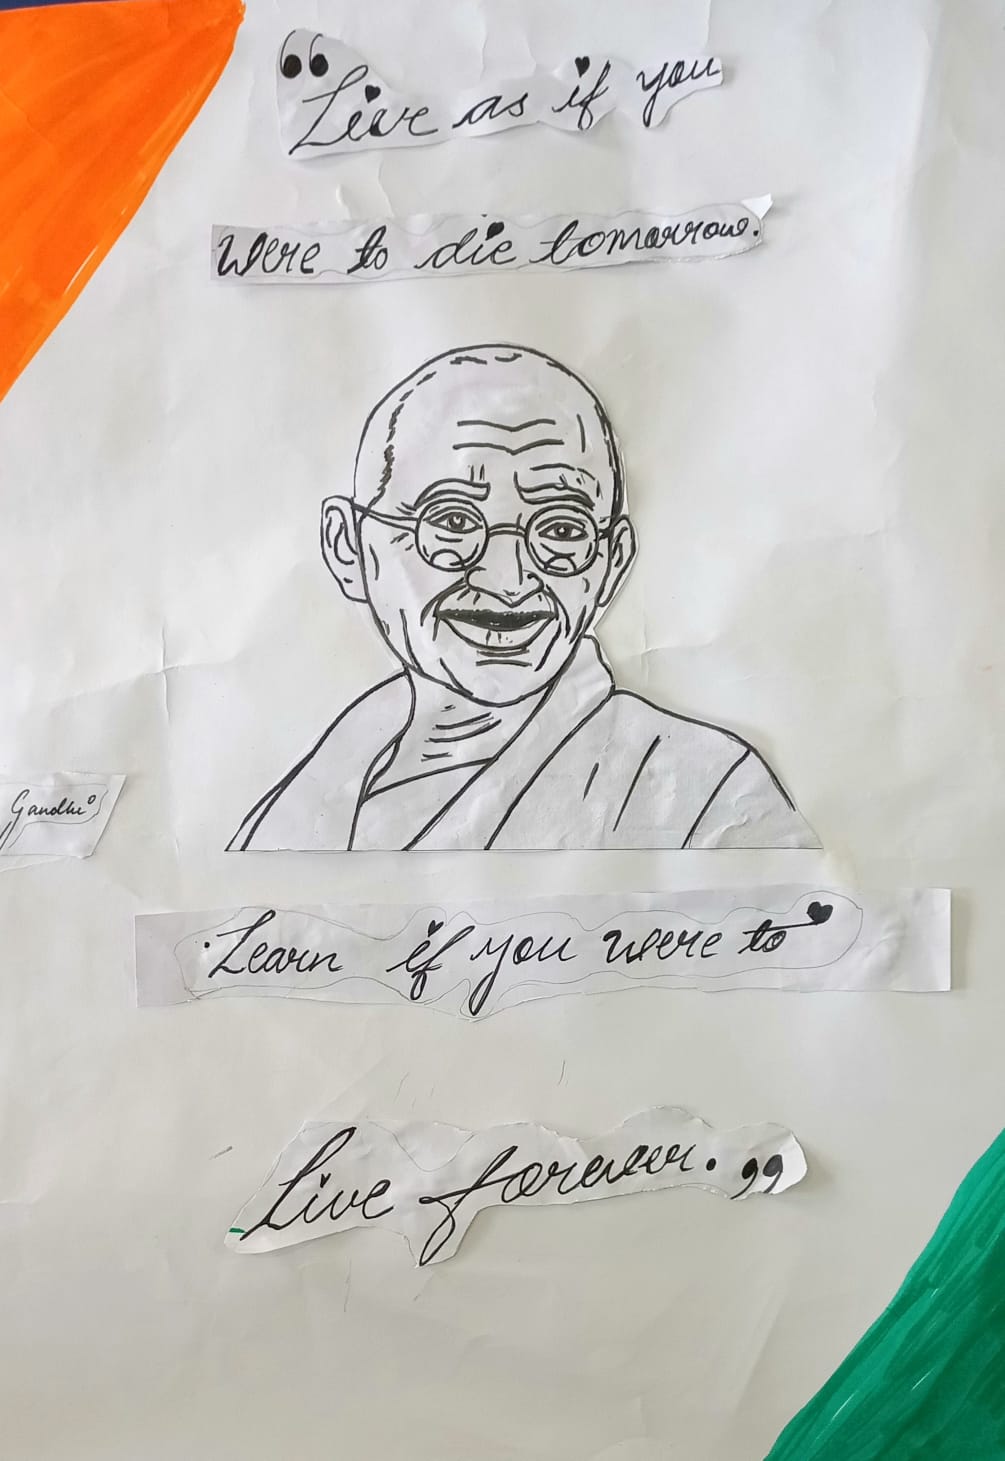 “Live as if you
Were to die tomorrow.
Gandhi
Learn if you were to
Live forever.”